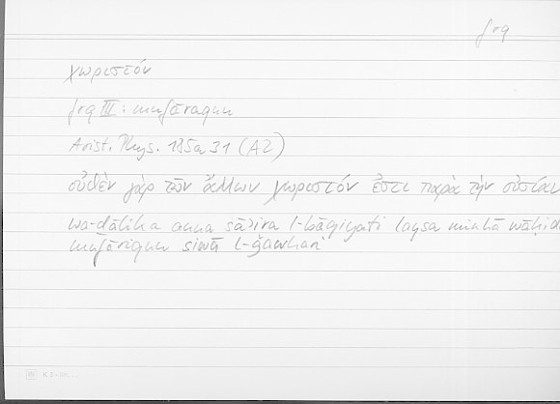 frq
χωριστόν
frq III: mufāraqun
Arist. Phys. 185a31 (A2)
οὐθὲν γὰρ τῶν ἄλλων χωριστόν ἐστι παρὰ τὴν οὐσίαν
wa-ḏālika anna sāʾira l-bāqiyati laysa minhā wāḥid
mufāriqun siwā l-ǧawhari